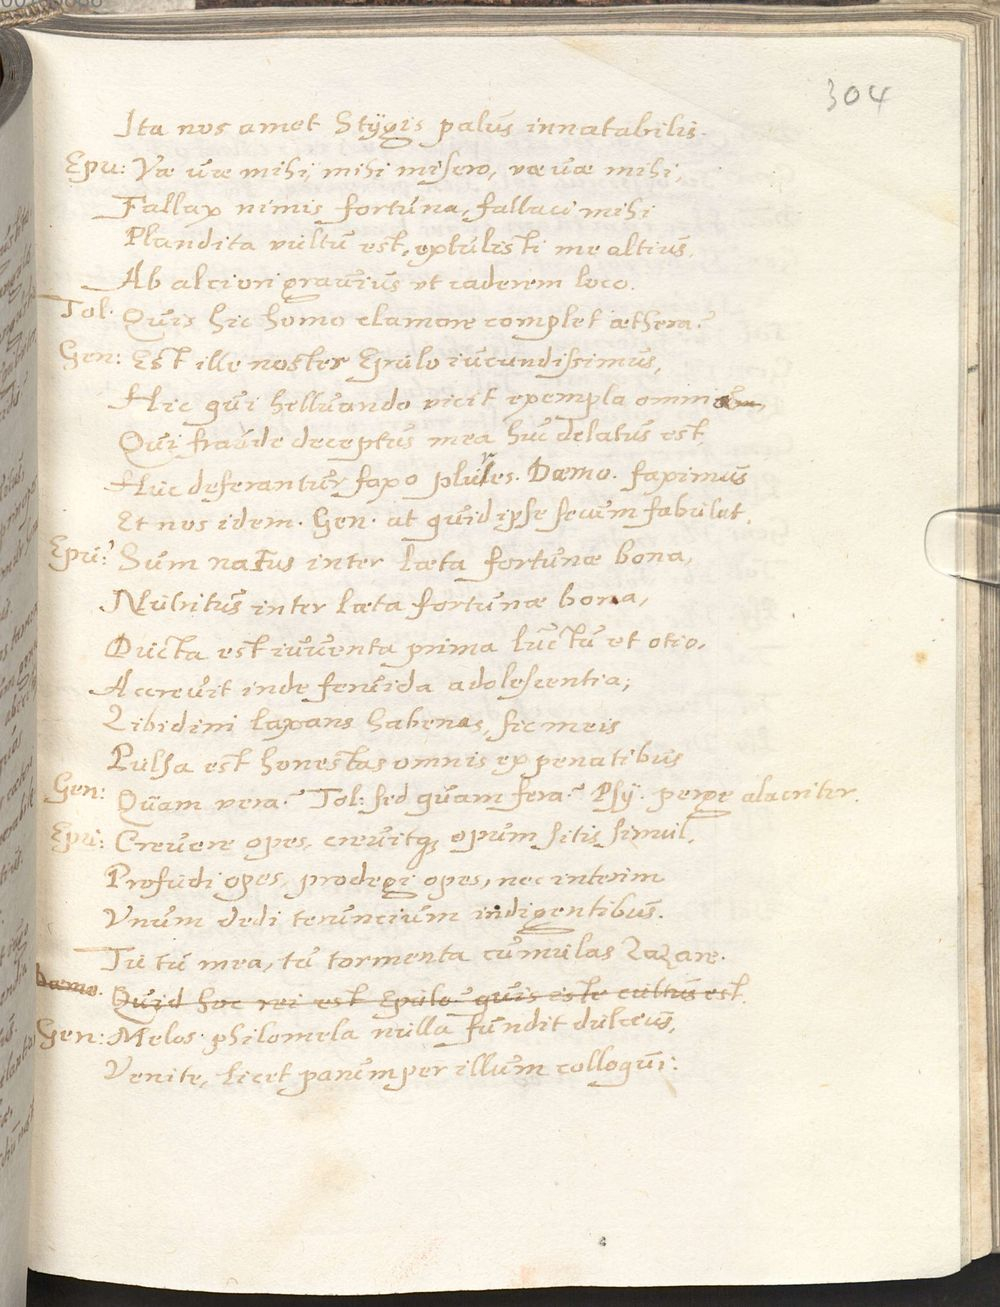 304
Ita nos amet Stÿgis palus innatabilis.
Epu: Væ væ mihi, mihi misero, væ væ mihi,
Fallax nimis fortuna, fallaci mihi
Blandita vultu est, extulisti me altius,
Ab alciori gravius ut caderem loco.
Tol. Quis hic homo clamore complet æthera?
Gen: Est ille noster Epulo iucundissimus,
Hic qui helluando vicit exempla omnium,
Qui fraude deceptus mea huc delatus est,
Huc deferantur faxo plures. Dæmo. faximus
Et nos idem. Gen. at quid ipse secum fabulat.
Epu: Sum natus inter læta fortunæ bona,
Nutritus inter læta fortunæ bona,
Ducta est iuventa prima luctu et otio,
Accrevit inde fervida adolescentia;
Libidini laxans habenas, sic meis
Pulsa est honestas omnis ex penatibus
Gen: Quam vera? Tol: sed quam fera? Psÿ. perge alacriter.
Epu: Crevere opes, crevitq; opum sitis simul,
Profudi opes, prodegi opes, nec interim
Unum dedi teruncium indigentibus.
Tu tu mea, tu tormenta cumulas Lazare.
Dæmo. Quid hoc rei est Epulo? quis iste cultus est.
Gen: Melos philomela nulla fundit dulcius,
Venite, licet parumper illum colloqui: